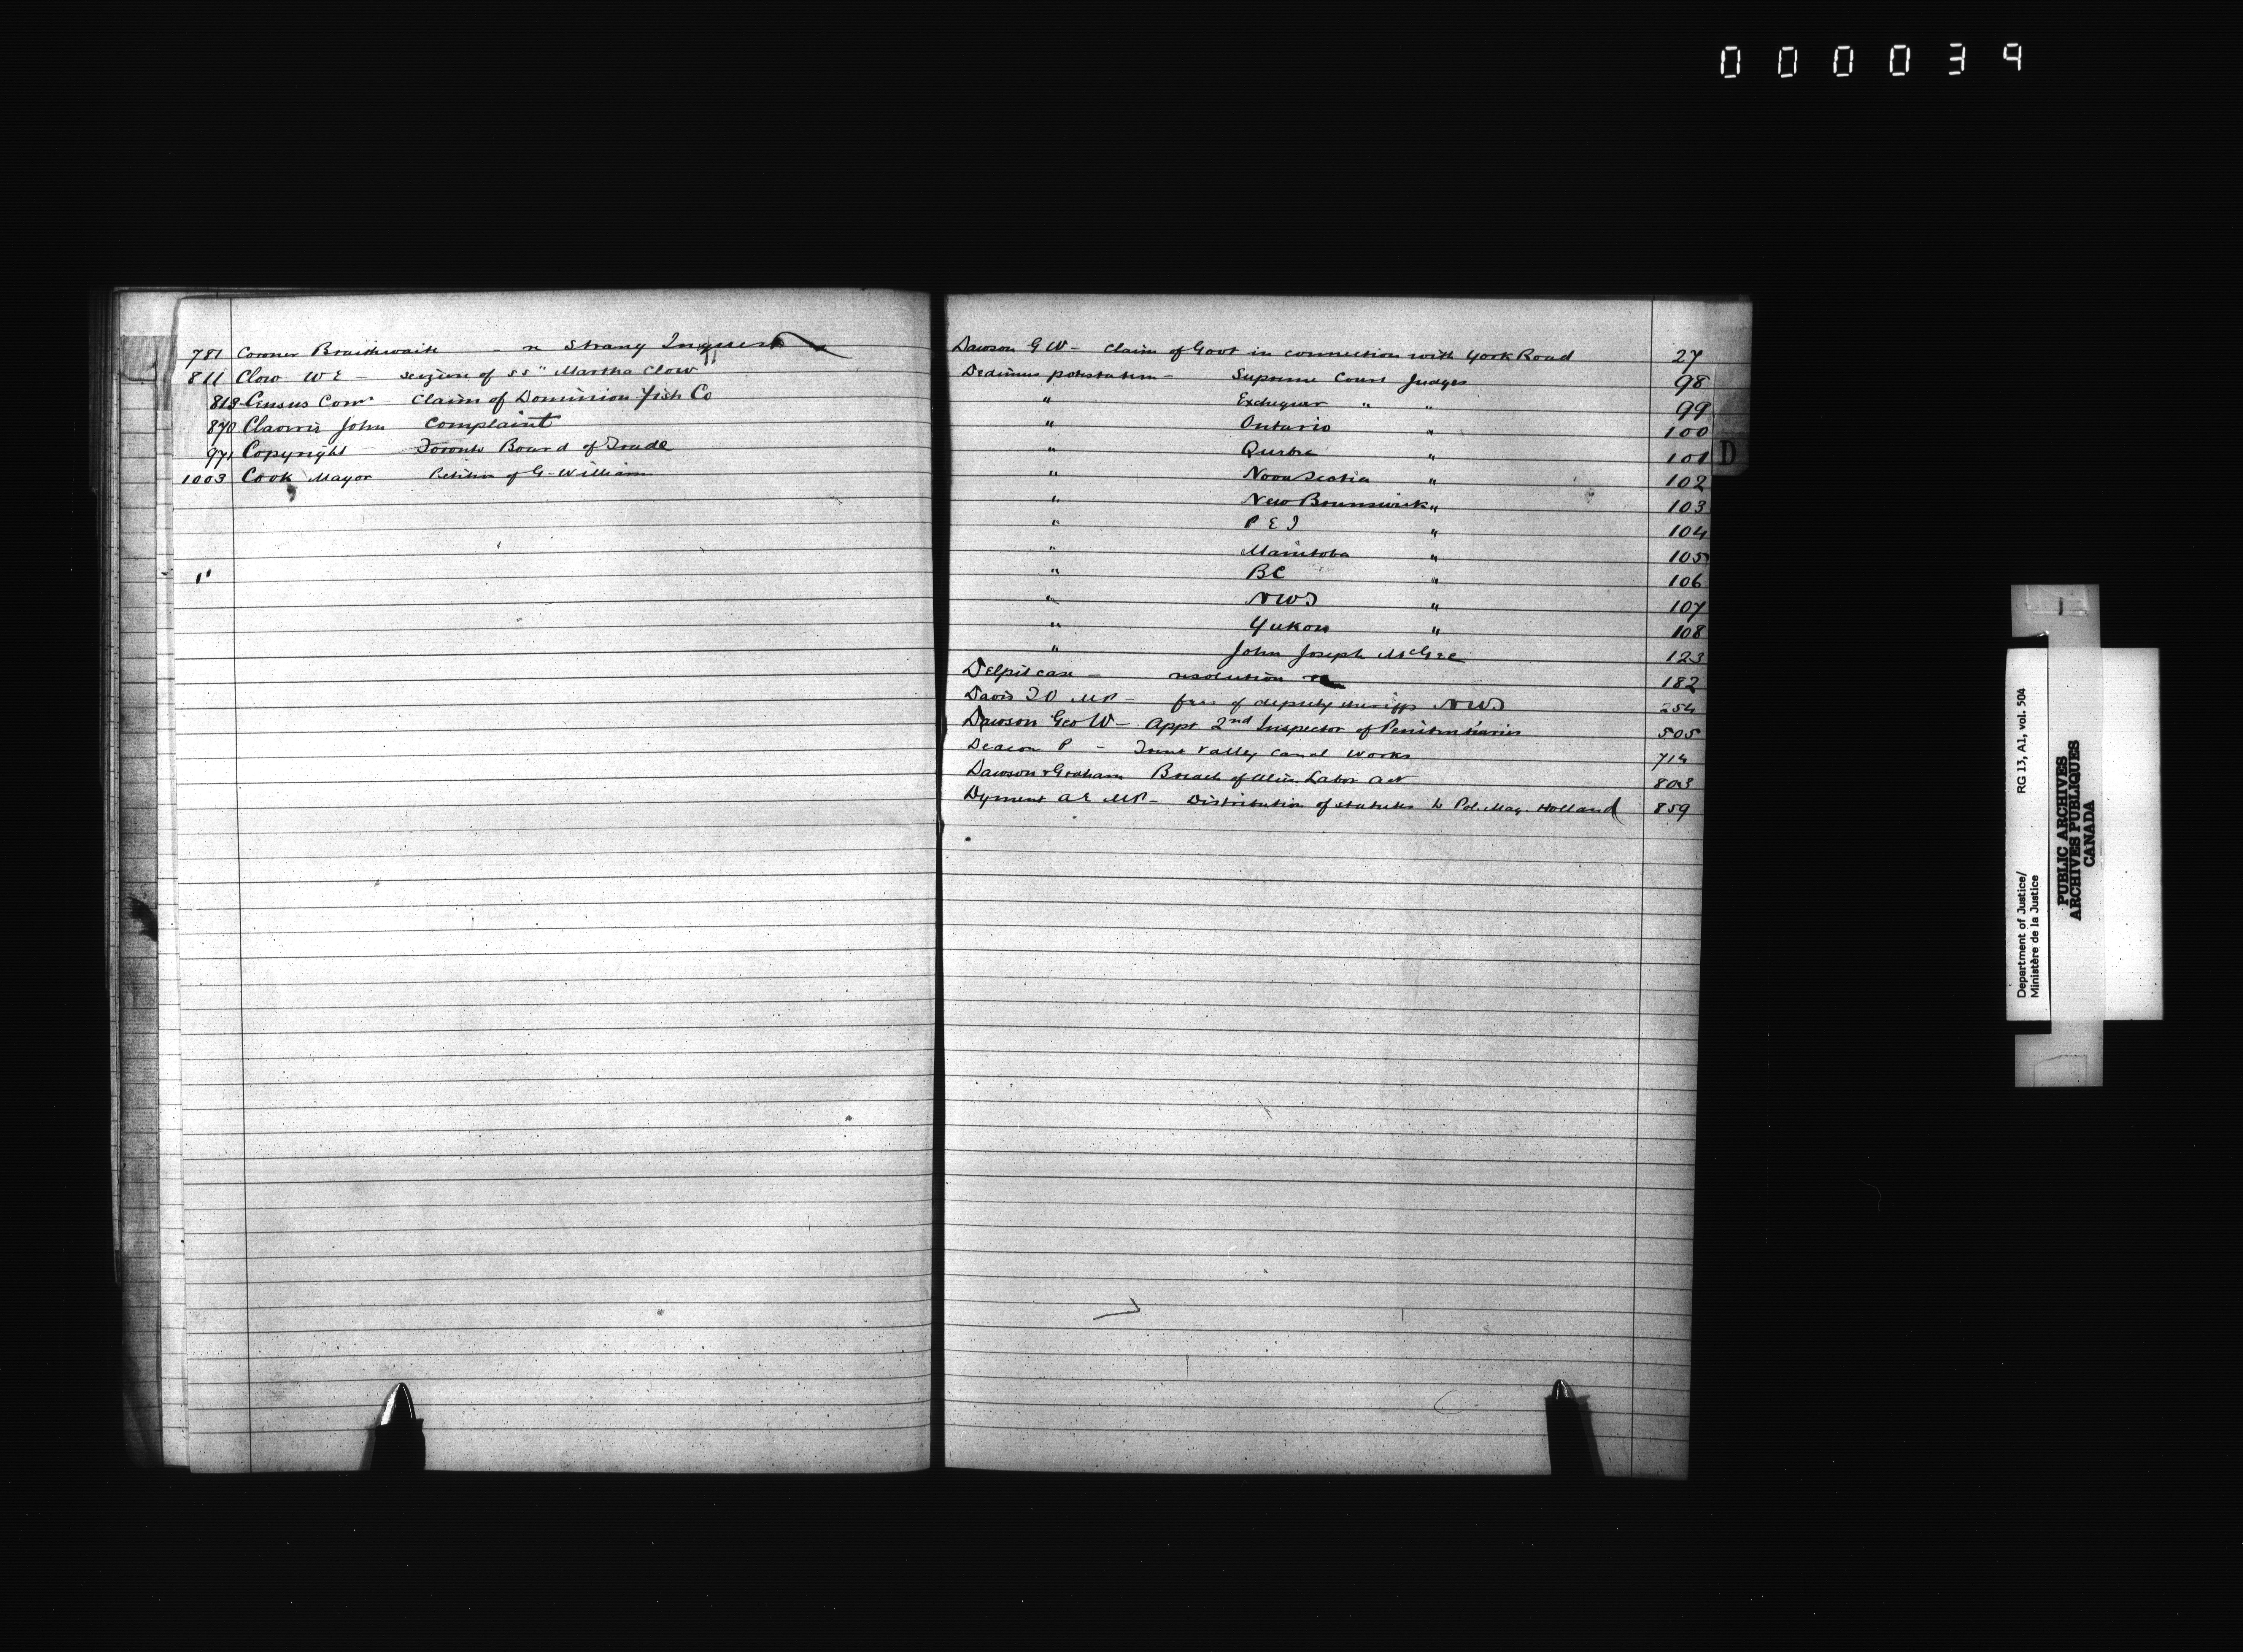 000039
781 Coroner Braithwaite - re Strang Inquest
811 Clow W E - Seizure of SS "Martha Clow"
818 Census Comr - Claim of Dominion Fish Co
870 John Complaint
971 Copyright Toronto Board of Trade
1003 Cook Mayor Petition of G. William
"
Dawson G W - Claim of Govt in connection with York Road 27
Dedimus potestatem - Supreme Court Judges 98
" Exchequer " " 99
" Ontario " 100
" Quebec " 101
" Nova Scotia " 102
" New Brunswick " 103
" P E I " 104
" Manitoba " 105
" BC " 106
" NWT " 107
" Yukon " 108
" John Joseph McGee 123
Delpit case - resolution re 182
Davis T O MP - fees of deputy sheriffs NWT 254
Dawson Geo W - Appt 2nd Inspector of Penitentiaries 505
Deacon P - Trent Valley Canal Works 714
Dawson & Graham Breach of Alien Labor Act 803
Dyment A E MP - Distribution of statutes to Pol. Mag. Holland 859
D
Department of Justice/
Ministère de la Justice
RG 13, A1, vol. 504
PUBLIC ARCHIVES
ARCHIVES PUBLIQUES
CANADA